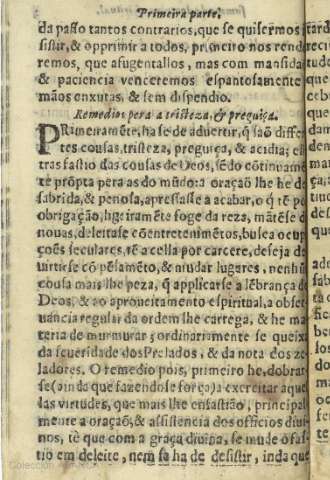 Primeira parte,
da passo tantos contrarios, que se quisermos
sistir, & opprimir a todos, primeiro nos rende
remos, que afugentallos, mas com mansida
& paciencia venceremos espantosamente
mãos enxutas, & sem dispendio.
Remedios pera a tristeza, & preguiça.
PRimeiramẽte, ha se de advertir, q̃ saõ differẽ
tes cousas, tristeza, preguiça, & acidia; est
tras fastio das cousas de Deos, sẽdo cõtinuamẽ
te prõpta pera as do mũdo: a oraçaõ lhe he de
sabrida, & penosa, apressasse a acabar, o q̃ tẽ pe
obrigação, ligeiramẽte foge da reza, mãtẽse d
novas, deleitase cõ entretenimẽtos, busca ocup
ções seculares, tẽ a cella por carcere, deseja de
virtirse cõ pẽsamẽto, & mudar lugares, nenhũ
cousa mais lhe peza, q̃ applicarse a lẽbrança de
Deos, & ao aproveitamento espiritual, a obser
uancia regular da ordem lhe carrega, & he ma
teria de murmurar; ordinariamente se queixa
da severidade dos Prelados, & da nota dos ze-
ladores. O remedio pois, primeiro he, dobrar
se (ainda que fazendose força) a exercitar aque
las virtudes, que mais lhe enfastião, principal
mente a oração, & assistencia dos officios divi
nos, tè que com a graça divina, se mude o fas
tio em deleite, nem se ha de desistir, inda que